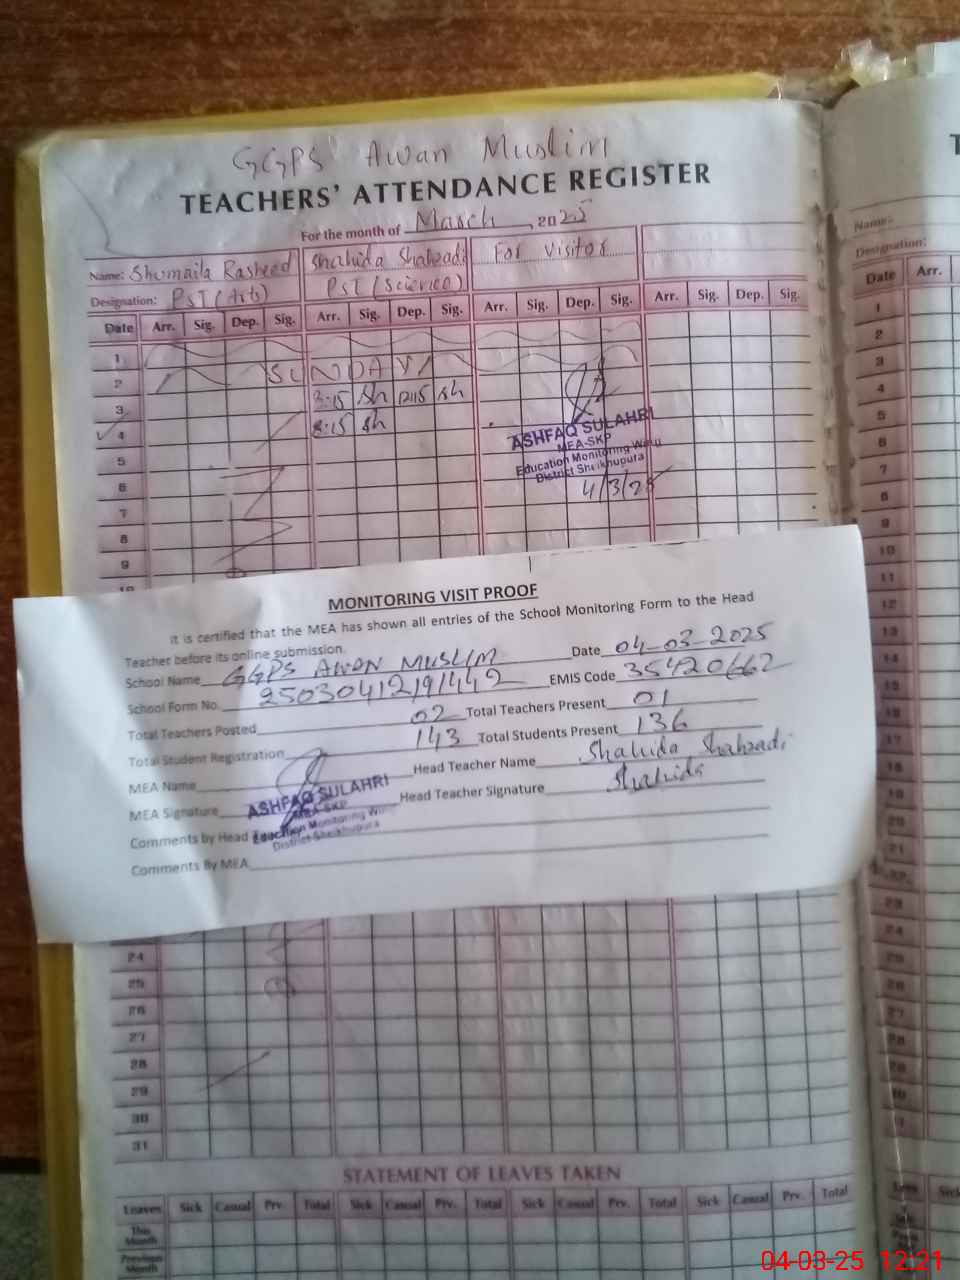 GGPS Awan Muslim
TEACHERS' ATTENDANCE REGISTER
For the month of March, 2025
Name: Shumaila Rasheed Shahida Shahzadi For Visitor
Designation: PST (Arts) PST (Science)
Date Arr. Sig. Dep. Sig. Arr. Sig. Dep. Sig. Arr. Sig. Dep. Sig. Arr. Sig. Dep. Sig.
1
2 SUNDAY
3 8:15 Sh 12:15 Sh
4 8:15 Sh
ASHFAQ SULAHRI
MEA-SKP
5
Education Monitoring Wing
District Sheikhupura
6 4/3/25
7
8
9
10
MONITORING VISIT PROOF
It is certified that the MEA has shown all entries of the School Monitoring Form to the Head
Teacher before its online submission.
School Name GGPS AWAN MUSLIM Date 04-03-2025
School Form No. 25030412191442 EMIS Code 35420662
Total Teachers Posted 02 Total Teachers Present 01
Total Student Registration 143 Total Students Present 136
MEA Name Head Teacher Name Shahida Shahzadi
MEA Signature Head Teacher Signature Shahida
ASHFAQ SULAHRI
MEA-SKP
Education Monitoring Wing
District Sheikhupura
Comments by Head
Comments By MEA
24
25
26
27
28
29
30
31
STATEMENT OF LEAVES TAKEN
Leaves Sick Casual Prv. Total Sick Casual Prv. Total Sick Casual Prv. Total Sick Casual Prv. Total
This Month
Previous Month
Name:
Designation:
Date Arr.
1
2
3
4
5
6
7
8
9
10
11
12
13
14
15
16
17
18
19
20
21
22
23
24
25
26
27
28
29
30
04-03-25 12:21